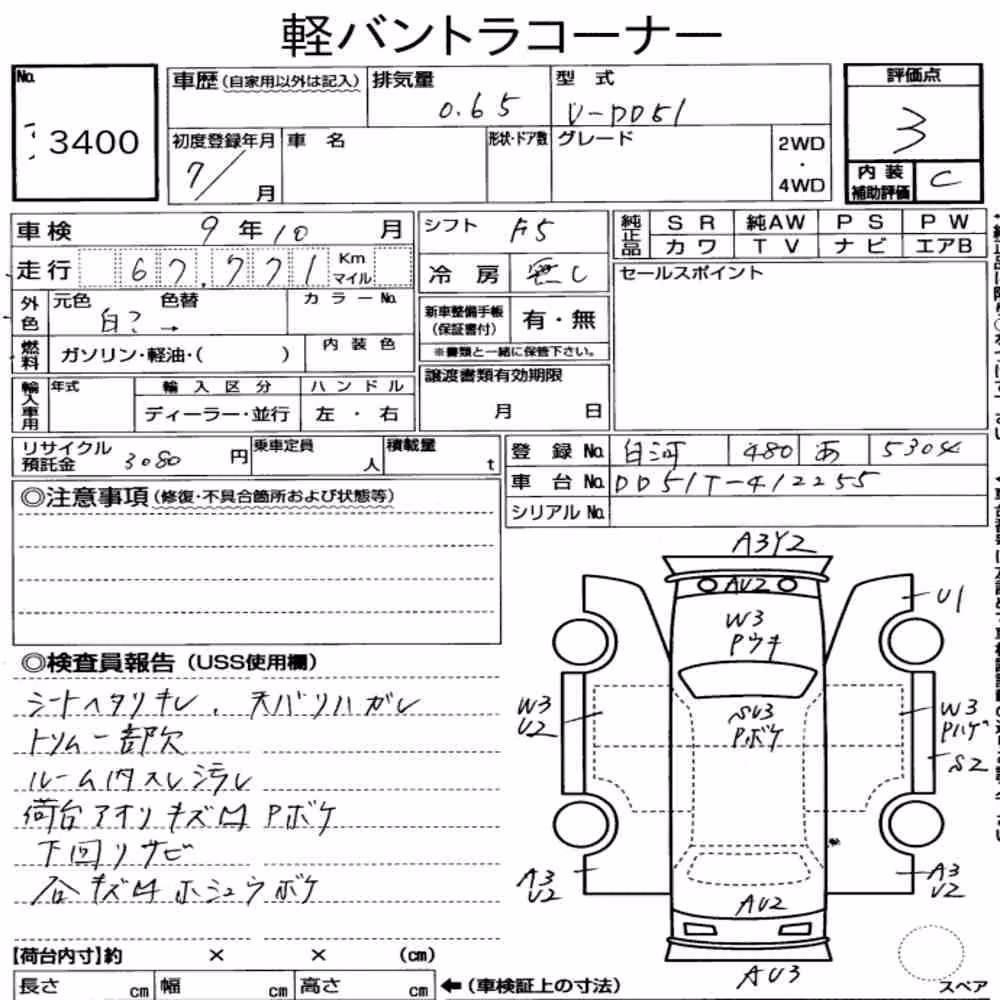 軽バントラコーナー
No.
3400
車歴(自家用以外は記入)
排気量
0.65
型 式
V-DD51
評価点
3
内 装
補助評価
C
初度登録年月
7/ 月
車 名
形状・ドア数
グレード
2WD
・
4WD
車検 9 年 10 月
走行 67,771 Km
マイル
外色
元色 色替
白? →
カラーNo.
燃料
ガソリン・軽油・( )
内 装 色
輸入車用
年式
輸 入 区 分
ディーラー・並行
ハ ン ド ル
左 ・ 右
シフト F5
冷 房 無し
新車整備手帳
(保証書付)
有・無
※書類と一緒に保管下さい。
譲渡書類有効期限
月 日
純正品
S R 純AW P S P W
カ ワ T V ナ ビ エアB
セールスポイント
リサイクル
預託金 3080 円
乗車定員
人
積載量
t
登 録 No. 白河 480 あ 5304
車 台 No. DD51T-412255
シリアル No.
◎注意事項(修復・不具合箇所および状態等)
◎検査員報告(USS使用欄)
シートヘタリキレ、天バリハガレ
トリム一部欠
ルーム内スレ汚レ
荷台アオリキズ凹Pボケ
下回リサビ
各キズ凹ホシュウボケ
【荷台内寸】約 × × (cm)
長さ cm 幅 cm 高さ cm ←(車検証上の寸法)
A3Y2
AU2
W3
Pウキ
U1
SU3
Pボケ
W3
U2
W3
Pハゲ
S2
A3
U2
A3
U2
AU2
AU3
スペア